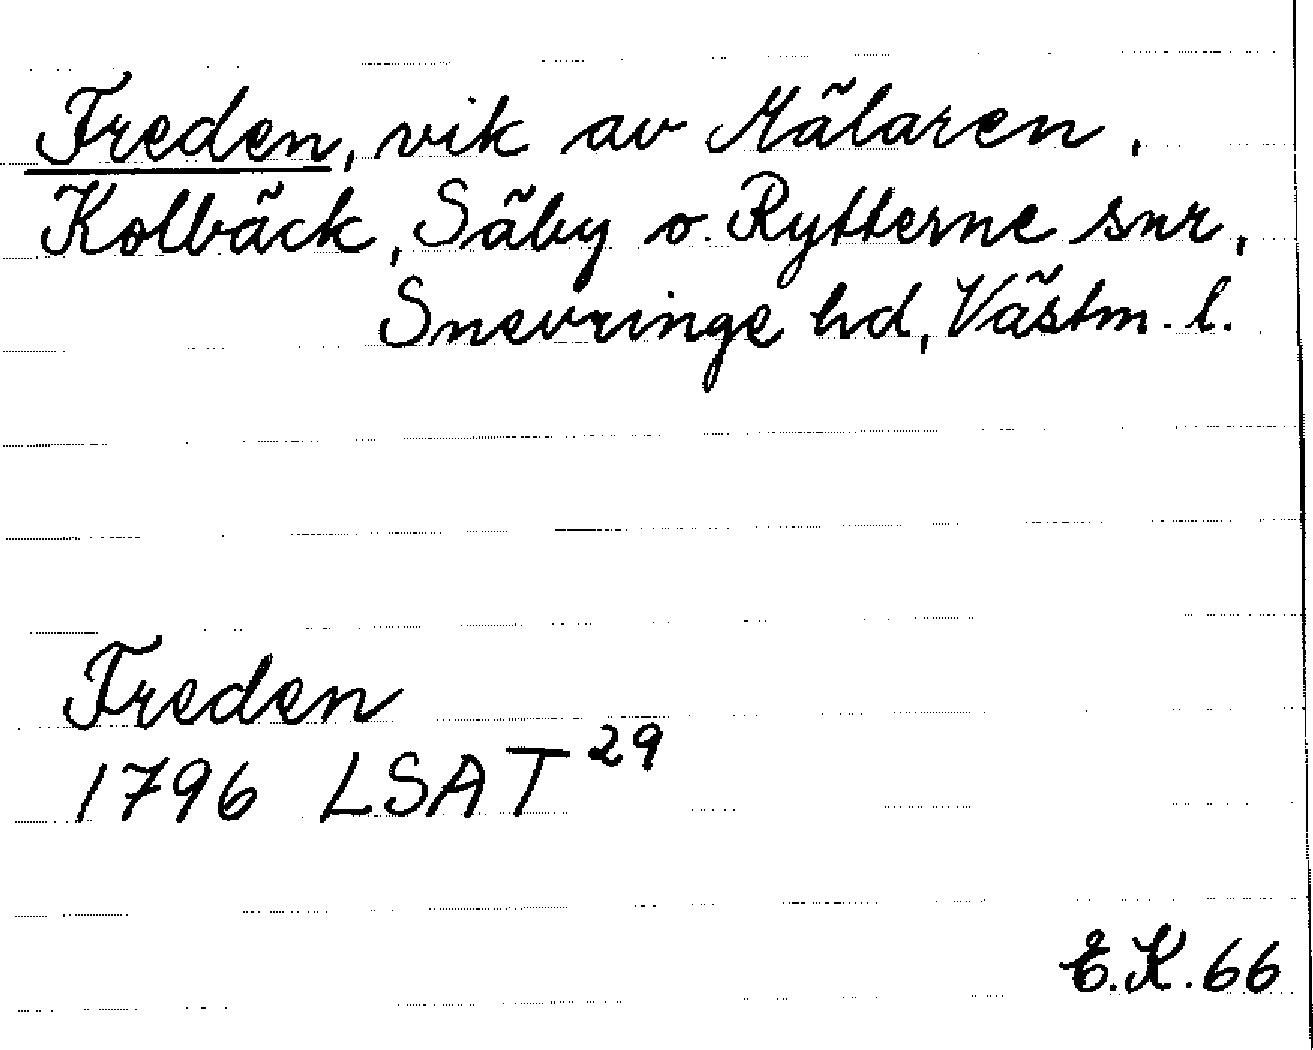 Freden, vik av Mälaren,
Kolbäck, Säby o. Rytterne snr,
Snevringe hd, Västm. l.
Freden
1796 LSA T²⁹
E.K. 66